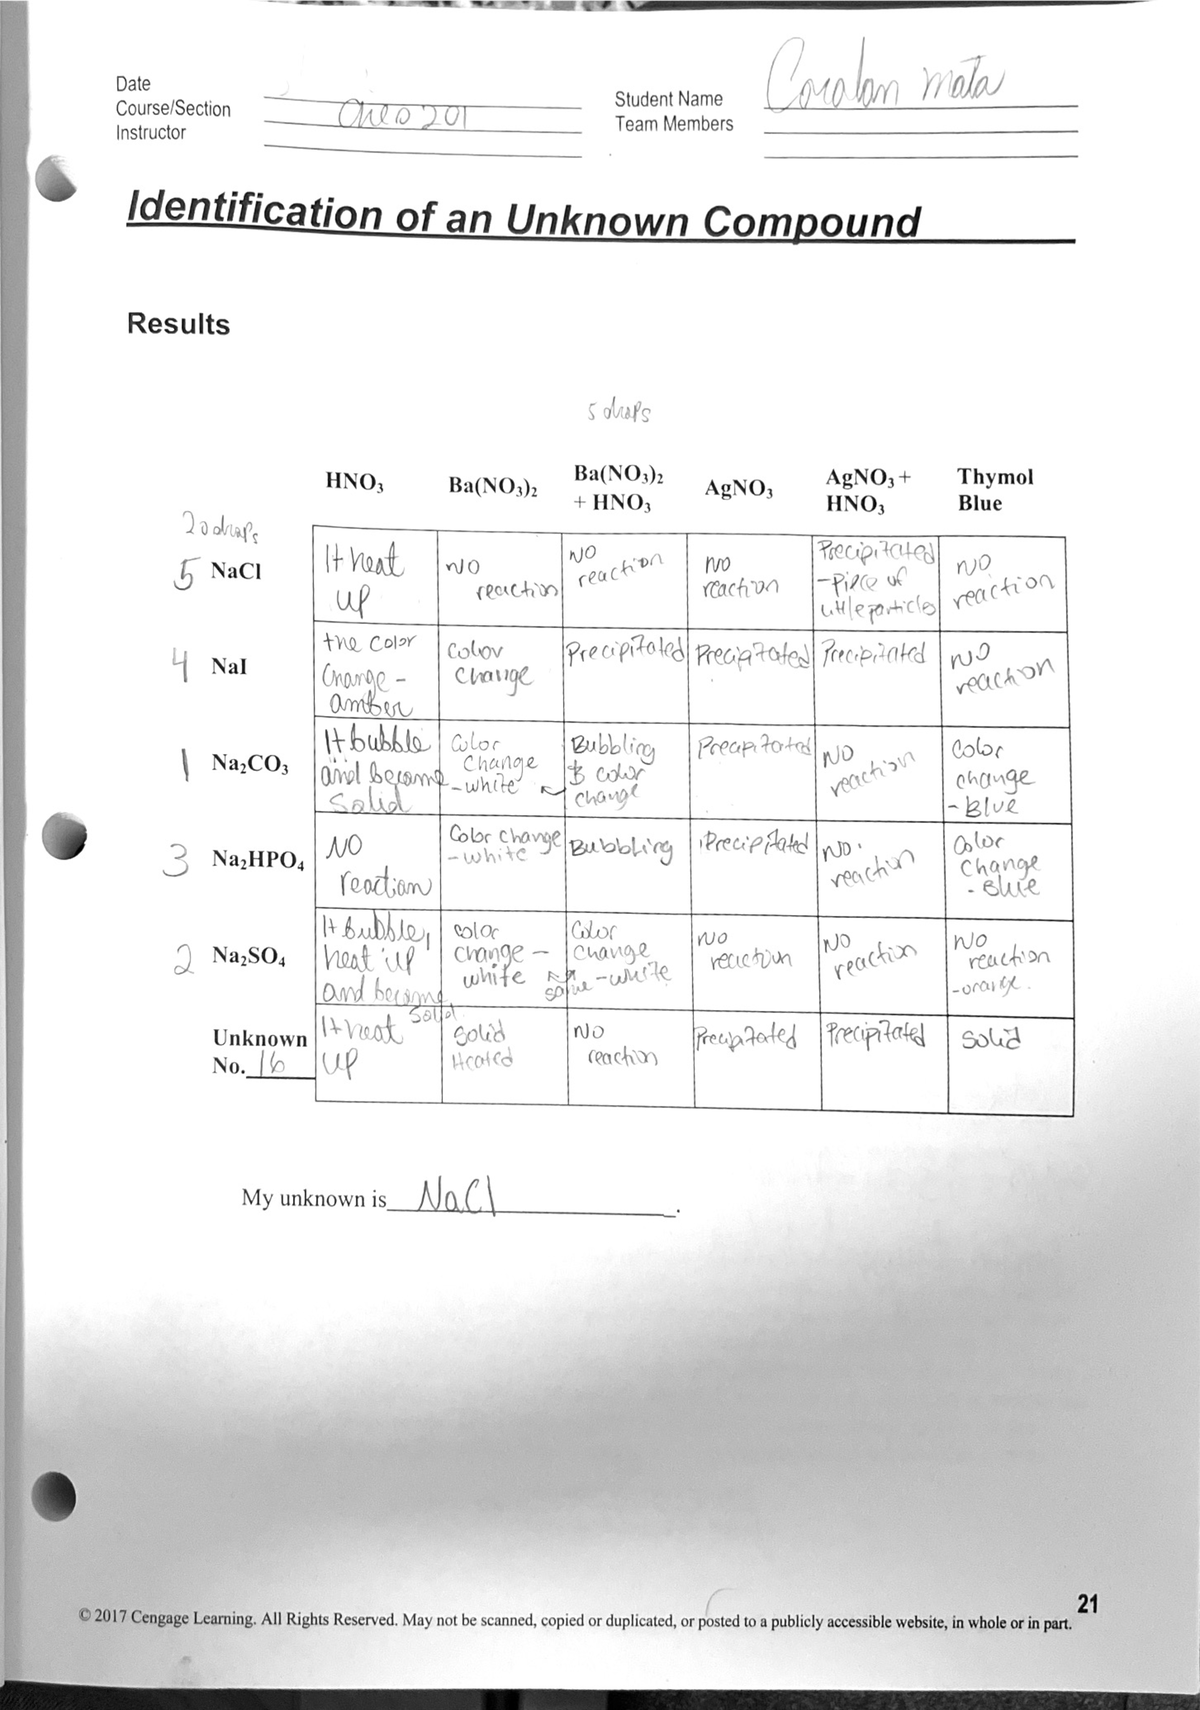 Date
Course/Section
Instructor
Student Name
Team Members
mata
Identification of an Unknown Compound
Results
5 drops
HNO3 Ba(NO3)2 Ba(NO3)2 + HNO3 AgNO3 AgNO3 + HNO3 Thymol Blue
20 drops
5 NaCl
It heat up
NO reaction
NO reaction
NO reaction
Precipitated - Piece of little particles
NO reaction
4 NaI
the color change - amber
Color change
Precipitated
Precipitated
Precipitated
NO reaction
1 Na2CO3
It bubble and become solid
Color change - white
Bubbling & color change
Precipitated
NO reaction
Color change - Blue
3 Na2HPO4
NO reaction
Color change - white
Bubbling
Precipitated
NO reaction
Color change - Blue
2 Na2SO4
It bubble, heat up and become solid
color change - white
Color change - white
same
NO reaction
NO reaction
NO reaction - orange.
Unknown No. 16
It heat up
Solid Heated
NO reaction
Precipitated
Precipitated
Solid
My unknown is NaCl.
21
© 2017 Cengage Learning. All Rights Reserved. May not be scanned, copied or duplicated, or posted to a publicly accessible website, in whole or in part.